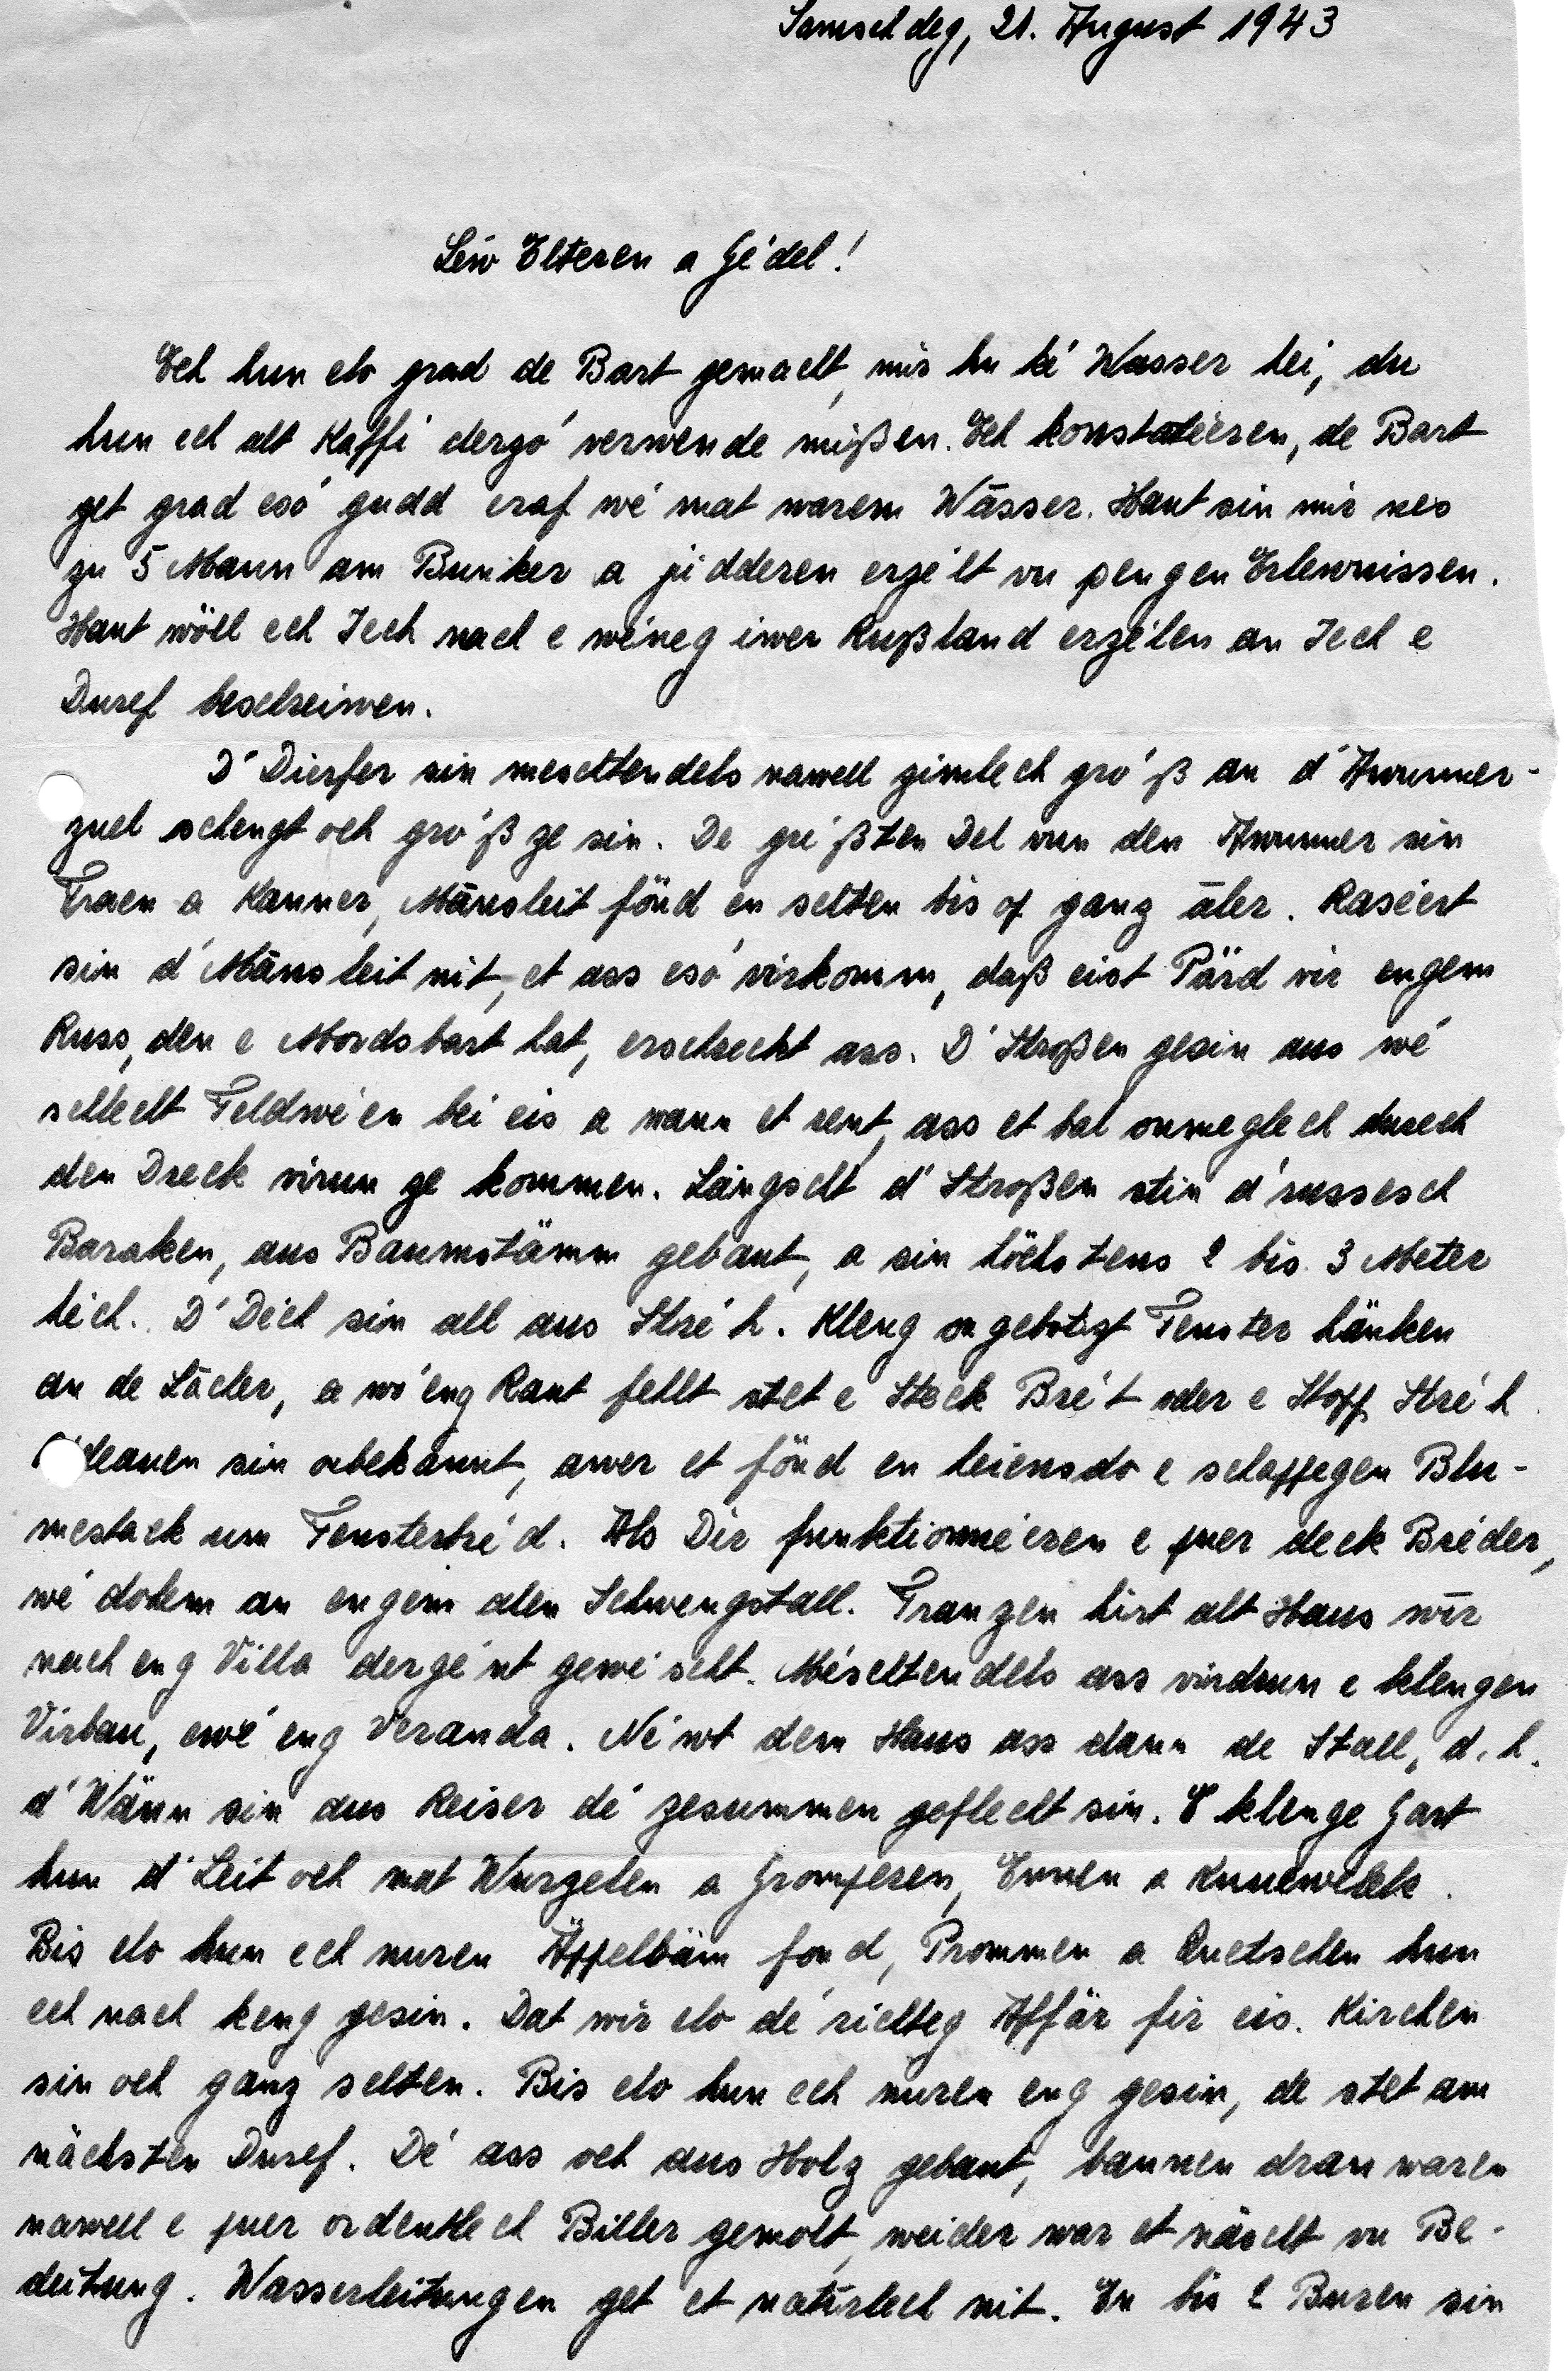 Samschdeg, 21. August 1943
Léw Elteren a Gédel!
Ech hun elo grad de Bart gemacht, mir hu ké Wasser hei, du
hun ech alt Kaffi dergó verwende mißen. Ech konstatéeren, de Bart
get grad esó gudd eraf wé mat warem Wässer. Haut sin mir nes
zu 5 Mann am Bunker a jidderen erzélt vu sengen Erlewnissen.
Haut wöll ech Iech nach e wéneg iwer Rußland erzélen an Iech e
Duref beschreiwen.
D'Dierfer sin meschtendels nawell zimlech gróß an d'Awunner-
zuel schengt och gróß ze sin. De gréßten Del vun den Awunner sin
Fraen a Kanner, Mänsleit fönd en selten bis op ganz āler. Raséert
sin d'Mänsleit nit, et ass esó virkomm, daß eist Pärd vir engem
Russ, den e Mordsbart hat, erschreckt ass. D'Stroßen gesin aus wé
schlecht Feldwéen bei eis a wann et rent, ass et bal onmeglech durech
den Dreck virun ze kommen. Längscht d'Stroßen stin d'russesch
Baraken, aus Baumstämm gebaut, a sin höchstens 2 bis 3 Meter
héich. D'Déch sin all aus Stréh. Kleng ongebotzt Fenster hänken
an de Lächer, a wó eng Raut fehlt stet e Steck Brét oder e Stopp Stréh.
sin onbekannt, awer et fönd en heiensdo e schappegen Blu-
mestack um Fensterbréd. Als Dir funktionnéeren e puer deck Bréder,
wé dohem an engem alen Schwengstall. Franzen hirt alt Haus wīr
nach eng Villa dergént gewéscht. Méschtendels ass virdrun e klengen
Virbau, ewé eng Veranda. Néwt dem Haus ass dann de Stall, d.h.
d'Wänn sin aus Reiser dé zesummen geflecht sin. E klenge Gart
hun d'Leit och mat Wurzelen a Gromperen, Ennen a Knuewelek.
Bis elo hun ech nuren Äppelbäm fond, Prommen a Quetschen hun
ech nach keng gesin. Dat wir elo dé richteg Affär fir eis. Kirchen
sin och ganz selten. Bis elo hun ech nuren eng gesin, de stet am
nächsten Duref. Dé ass och aus Holz gebaut, bannen dran waren
nawell e puer ordentlech Biller gemolt, weider war et näscht vu Be-
deitung. Wasserleitungen get et natirlech nit. En bis 2 Buren sin